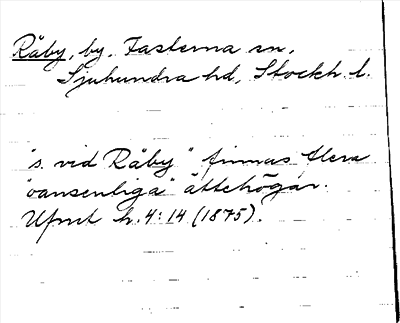 Råby, by, Fasterna sn,
Sjuhundra hd, Stockh. l.
"s. vid Råby" finnas flera
"oansenliga" ättehögar.
Ufmt h. 4:14 (1875).